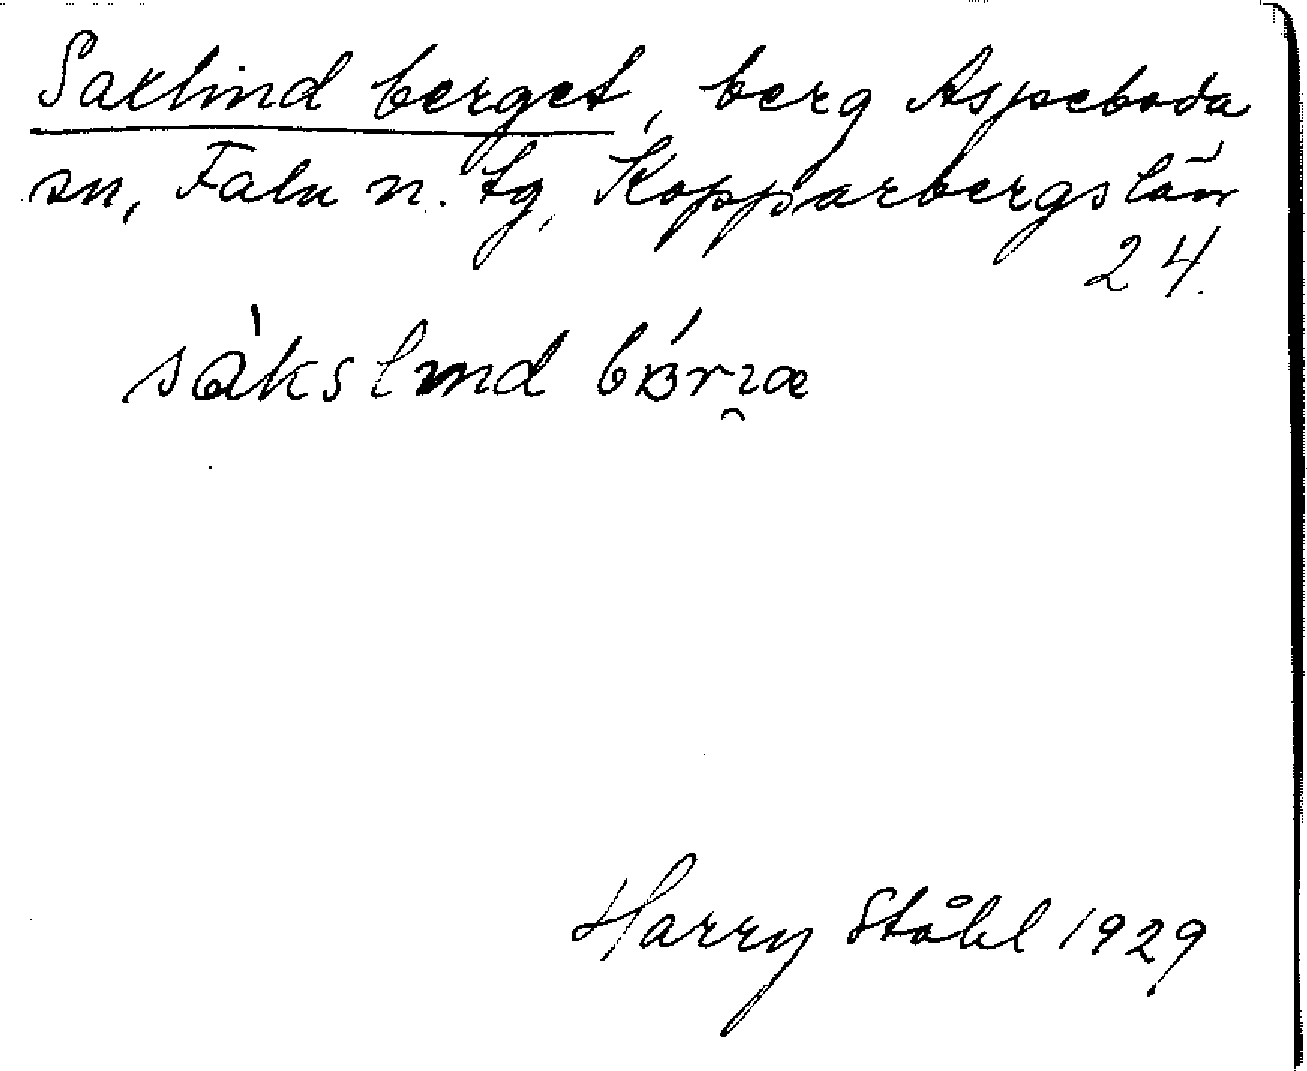 Saxlind berget, berg Aspeboda
sn, Falu n. tg, Kopparbergs län
24.
Harry Ståhl 1929